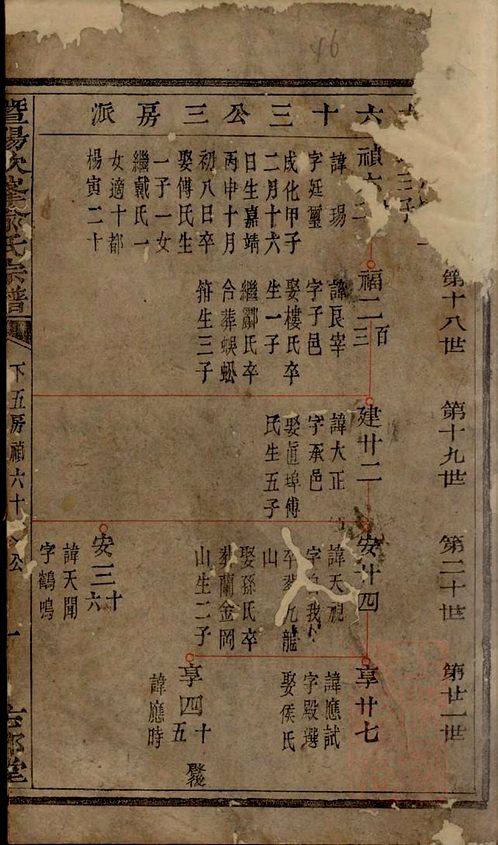 46
第十八世
第十九世
第二十世
第廿一世
六十三公三房派
禎六
諱瑒
字廷璽
成化甲子
二月十六
日生嘉靖
丙申十月
初八日卒
娶傅氏生
一子一女
繼戴氏一
女適十都
楊寅二十
福二百
三
諱良宰
字子邑
娶樓氏卒
生一子
繼酈氏卒
合葬蜈蚣
山生三子
建廿二
諱大正
字承邑
娶直埠傅
氏生五子
安廿四
諱天視
字我
卒葬九龍
山
娶孫氏卒
葬蘭金岡
山生二子
安三十
六
諱天聞
字鶴鳴
享廿七
諱應試
字殿選
娶侯氏
享四十
五
諱應時
暨陽次峯俞氏宗譜
下五房禎六十公
一